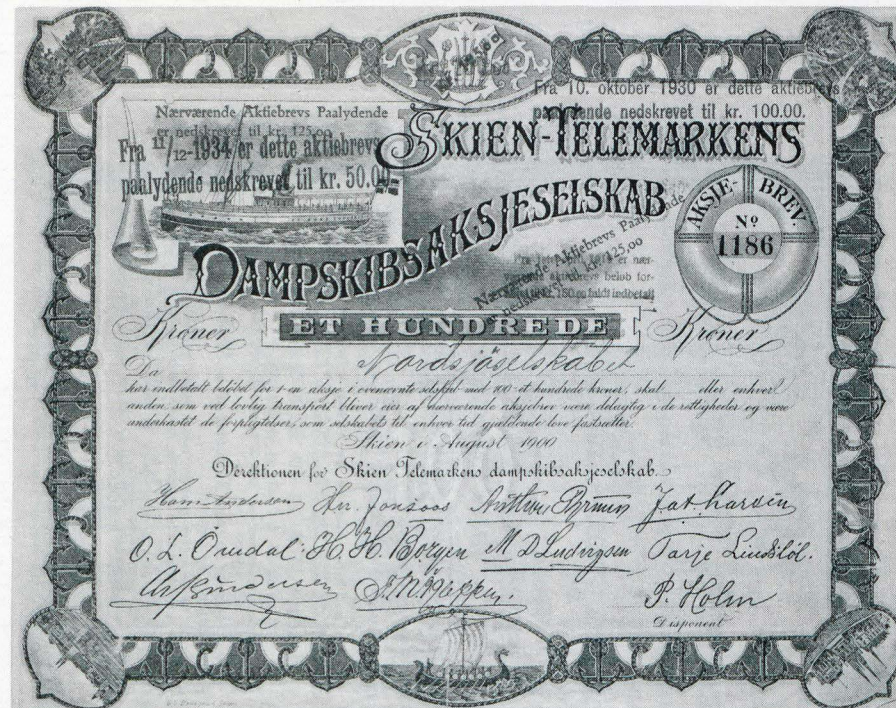 Fra 10. oktober 1930 er dette aktiebrevs
paalydende nedskrevet til kr. 100.00.
Nærværende Aktiebrevs Paalydende
er nedskrevet til kr. 125,00
Fra 11/12-1934 er dette aktiebrevs
paalydende nedskrevet til kr. 50.00
SKIEN-TELEMARKENS
DAMPSKIBSAKSJESELSKAB
AKSJE-BREV.
No
1186
Nærværende Aktiebrevs Paalydende
er nedskrevet til kr. 125,00
er nær-
værende aktiebrevs beløb for-
fuldt indbetalt
Kroner ET HUNDREDE Kroner
Da Nordsjöselskabet
har indbetalt beløbet for 1-en aksje i ovennævnte selskab med 100-et hundrede kroner, skal eller enhver
anden, som ved lovlig transport bliver eier af nærværende aksjebrev være delagtig i de rettigheder og være
underkastet de forpligtelser, som selskabets til enhver tid gjældende love fastsætter.
Skien i August 1900
Direktionen for Skien Telemarkens dampskibsaksjeselskab.
Hans Andersen
O. L. Omdal. H. H. Borgen M D Ludvigsen Tarje
P. Holm
Disponent